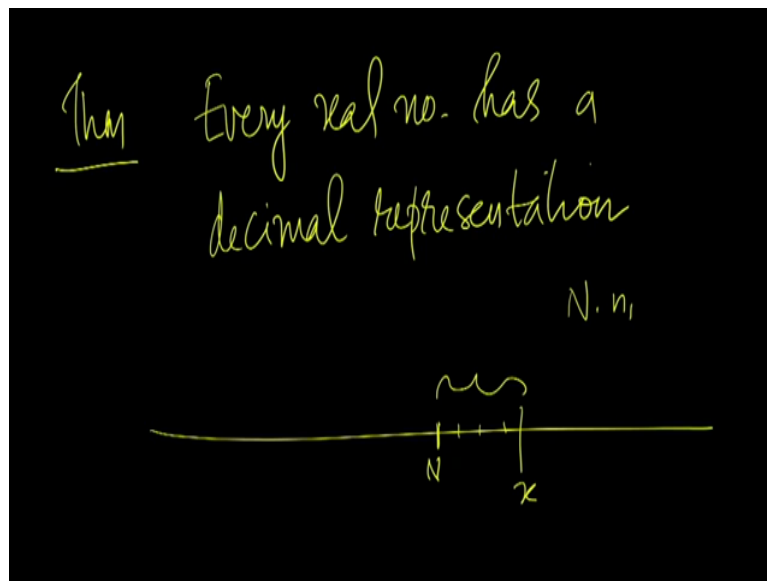 Thm Every real no. has a
decimal representation
N. n₁
N
x